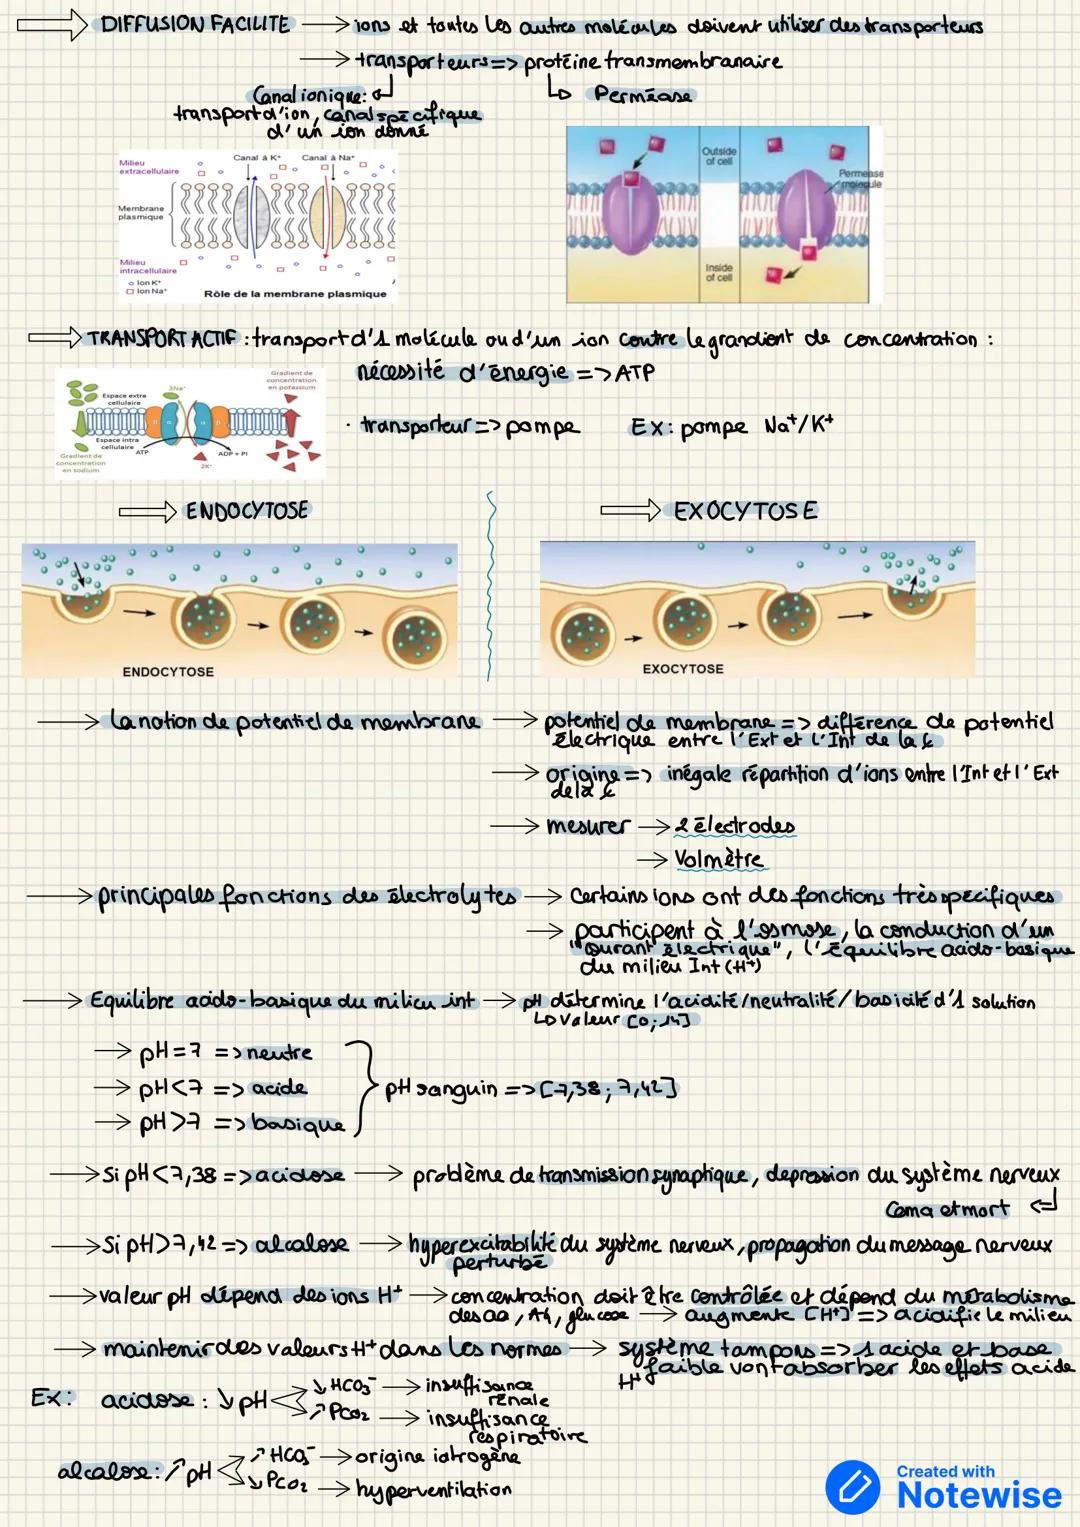 DIFFUSION FACILITE → ions et toutes les autres molécules doivent utiliser des transporteurs
→ transporteurs => protéine transmembranaire
Canal ionique:
transport d'ion, canal spécifique
d'un ion donné
Perméase
Milieu
extracellulaire
Canal à K+
Canal à Na+
Membrane
plasmique
Milieu
intracellulaire
Ion K+
Ion Na+
Rôle de la membrane plasmique
Outside
of cell
Permease
molecule
Inside
of cell
TRANSPORT ACTIF : transport d'1 molécule ou d'un ion contre le grandient de concentration :
nécessité d'énergie => ATP
Gradient de
concentration
en potassium
3Na+
Espace extra
cellulaire
Espace intra
cellulaire
ATP
ADP + Pi
2K+
Gradient de
concentration
en sodium
· transporteur => pompe Ex: pompe Na+/K+
ENDOCYTOSE
EXOCYTOSE
ENDOCYTOSE
EXOCYTOSE
→ La notion de potentiel de membrane → potentiel de membrane => différence de potentiel
électrique entre l'Ext et l'Int de la
→ origine => inégale répartition d'ions entre l'Int et l'Ext
de la
→ mesurer → 2 électrodes
→ Volmètre
→ principales fonctions des électrolytes → Certains ions ont des fonctions très spécifiques
→ participent à l'osmose, la conduction d'un
"courant électrique", l'équilibre acido-basique
du milieu Int (H+)
→ Equilibre acido-basique du milieu int → pH détermine l'acidité/neutralité/basicité d'1 solution
valeur [0;14]
→ pH=7 => neutre
→ pH<7 => acide
→ pH>7 => basique
pH sanguin => [7,38; 7,42]
→ Si pH<7,38 => acidose → problème de transmission synaptique, depression du système nerveux
Coma et mort
→ Si pH>7,42 => alcalose → hyperexcitabilité du système nerveux, propagation du message nerveux
perturbé
→ valeur pH dépend des ions H+ → concentration doit être contrôlée et dépend du métabolisme
des aa, AG, glucose → augmente [H+] => acidifie le milieu
→ maintenir des valeurs H+ dans les normes → système tampons => 1 acide et base
faible vont absorber les effets acide
H+
Ex: acidose : ↘ pH
↘ HCO3- → insuffisance
rénale
↗ PCO2 → insuffisance
respiratoire
alcalose: ↗ pH
↗ HCO3- → origine iatrogène
↘ PCO2 → hyperventilation
Created with
Notewise